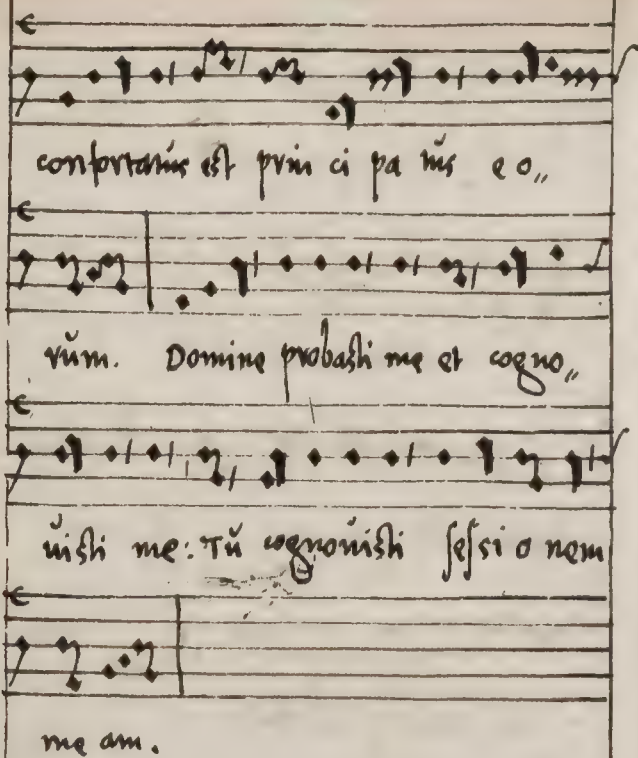 confortatús est prin ci pa tús e o„
rúm. Domine probasti me et cogno„
úisti me: Tú cognoúisti ses si o nem
me am.